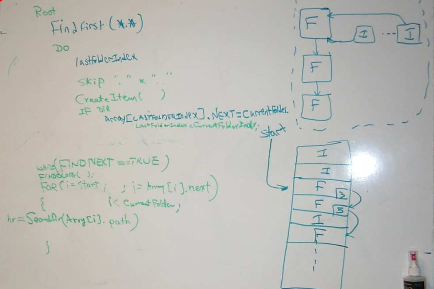 Root
FindFirst (*.*)
DO
lastFolderIndex
Skip "." & ".."
CreateItem( )
IF DIR
Array[LastFolderIndex].NEXT=CurrentFolder
LastFolderIndex=CurrentFolderIndex;
while(FINDNEXT==TRUE)
FINDCLOSE();
FOR(i=Start; ; i=Array[i].next)
{ i<CurrentFolder;
hr=SearchDir(Array[i].path)
}
F
I
I
F
F
Start
I
I
F
F
I
F